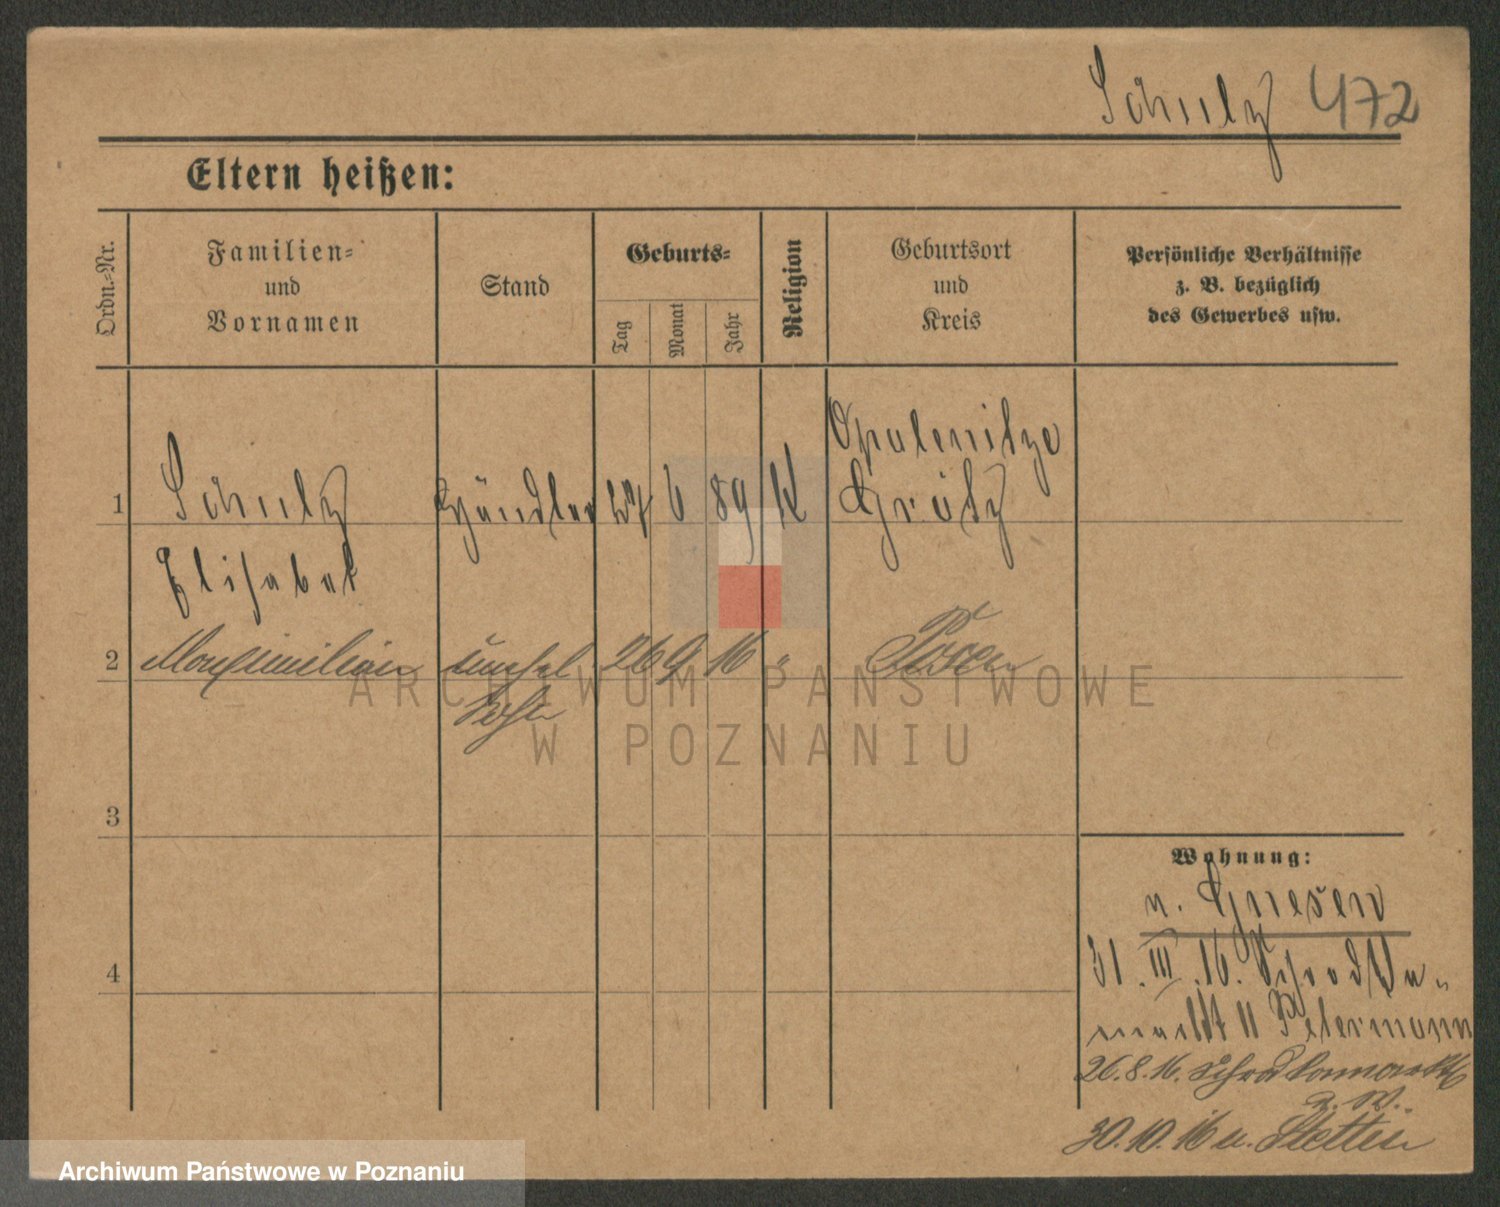 Schulz 472
Eltern heißen:
Ordn.=Nr.
Familien=
und
Vornamen
Stand
Geburts=
Tag
Monat
Jahr
Religion
Geburtsort
und
Kreis
Persönliche Verhältnisse
z. B. bezüglich
des Gewerbes usw.
1 Schulz Händler 6 89 K Opalenitza
Grätz
Elisabet
2 Maximilian unehel 26 9 16 " Posen
Sohn
3
4
Wohnung:
n. Gnesen
31. III. 16. Schrodka=
markt 11 Petermann
26.8.16. Schrodkamarkt
n. W.
30.10.16 n. Stettin
ARCHIWUM PAŃSTWOWE
W POZNANIU
Archiwum Państwowe w Poznaniu